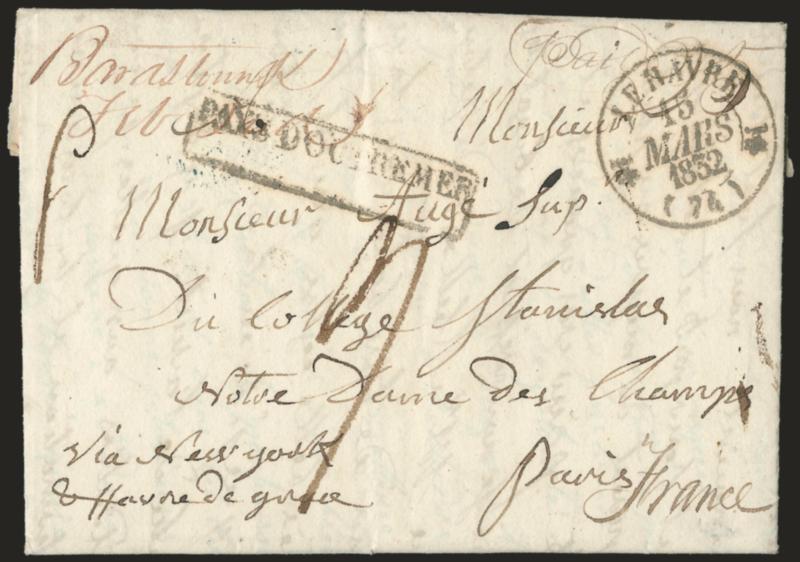 Paid
LE HAVRE
13
MARS
1832
(74)
PAYS D'OUTREMER
Monsieur
Monsieur Augé Sup.r
Du College Stanislas
Notre Dame des Champs
Paris
France
via New york
& Havre de grace